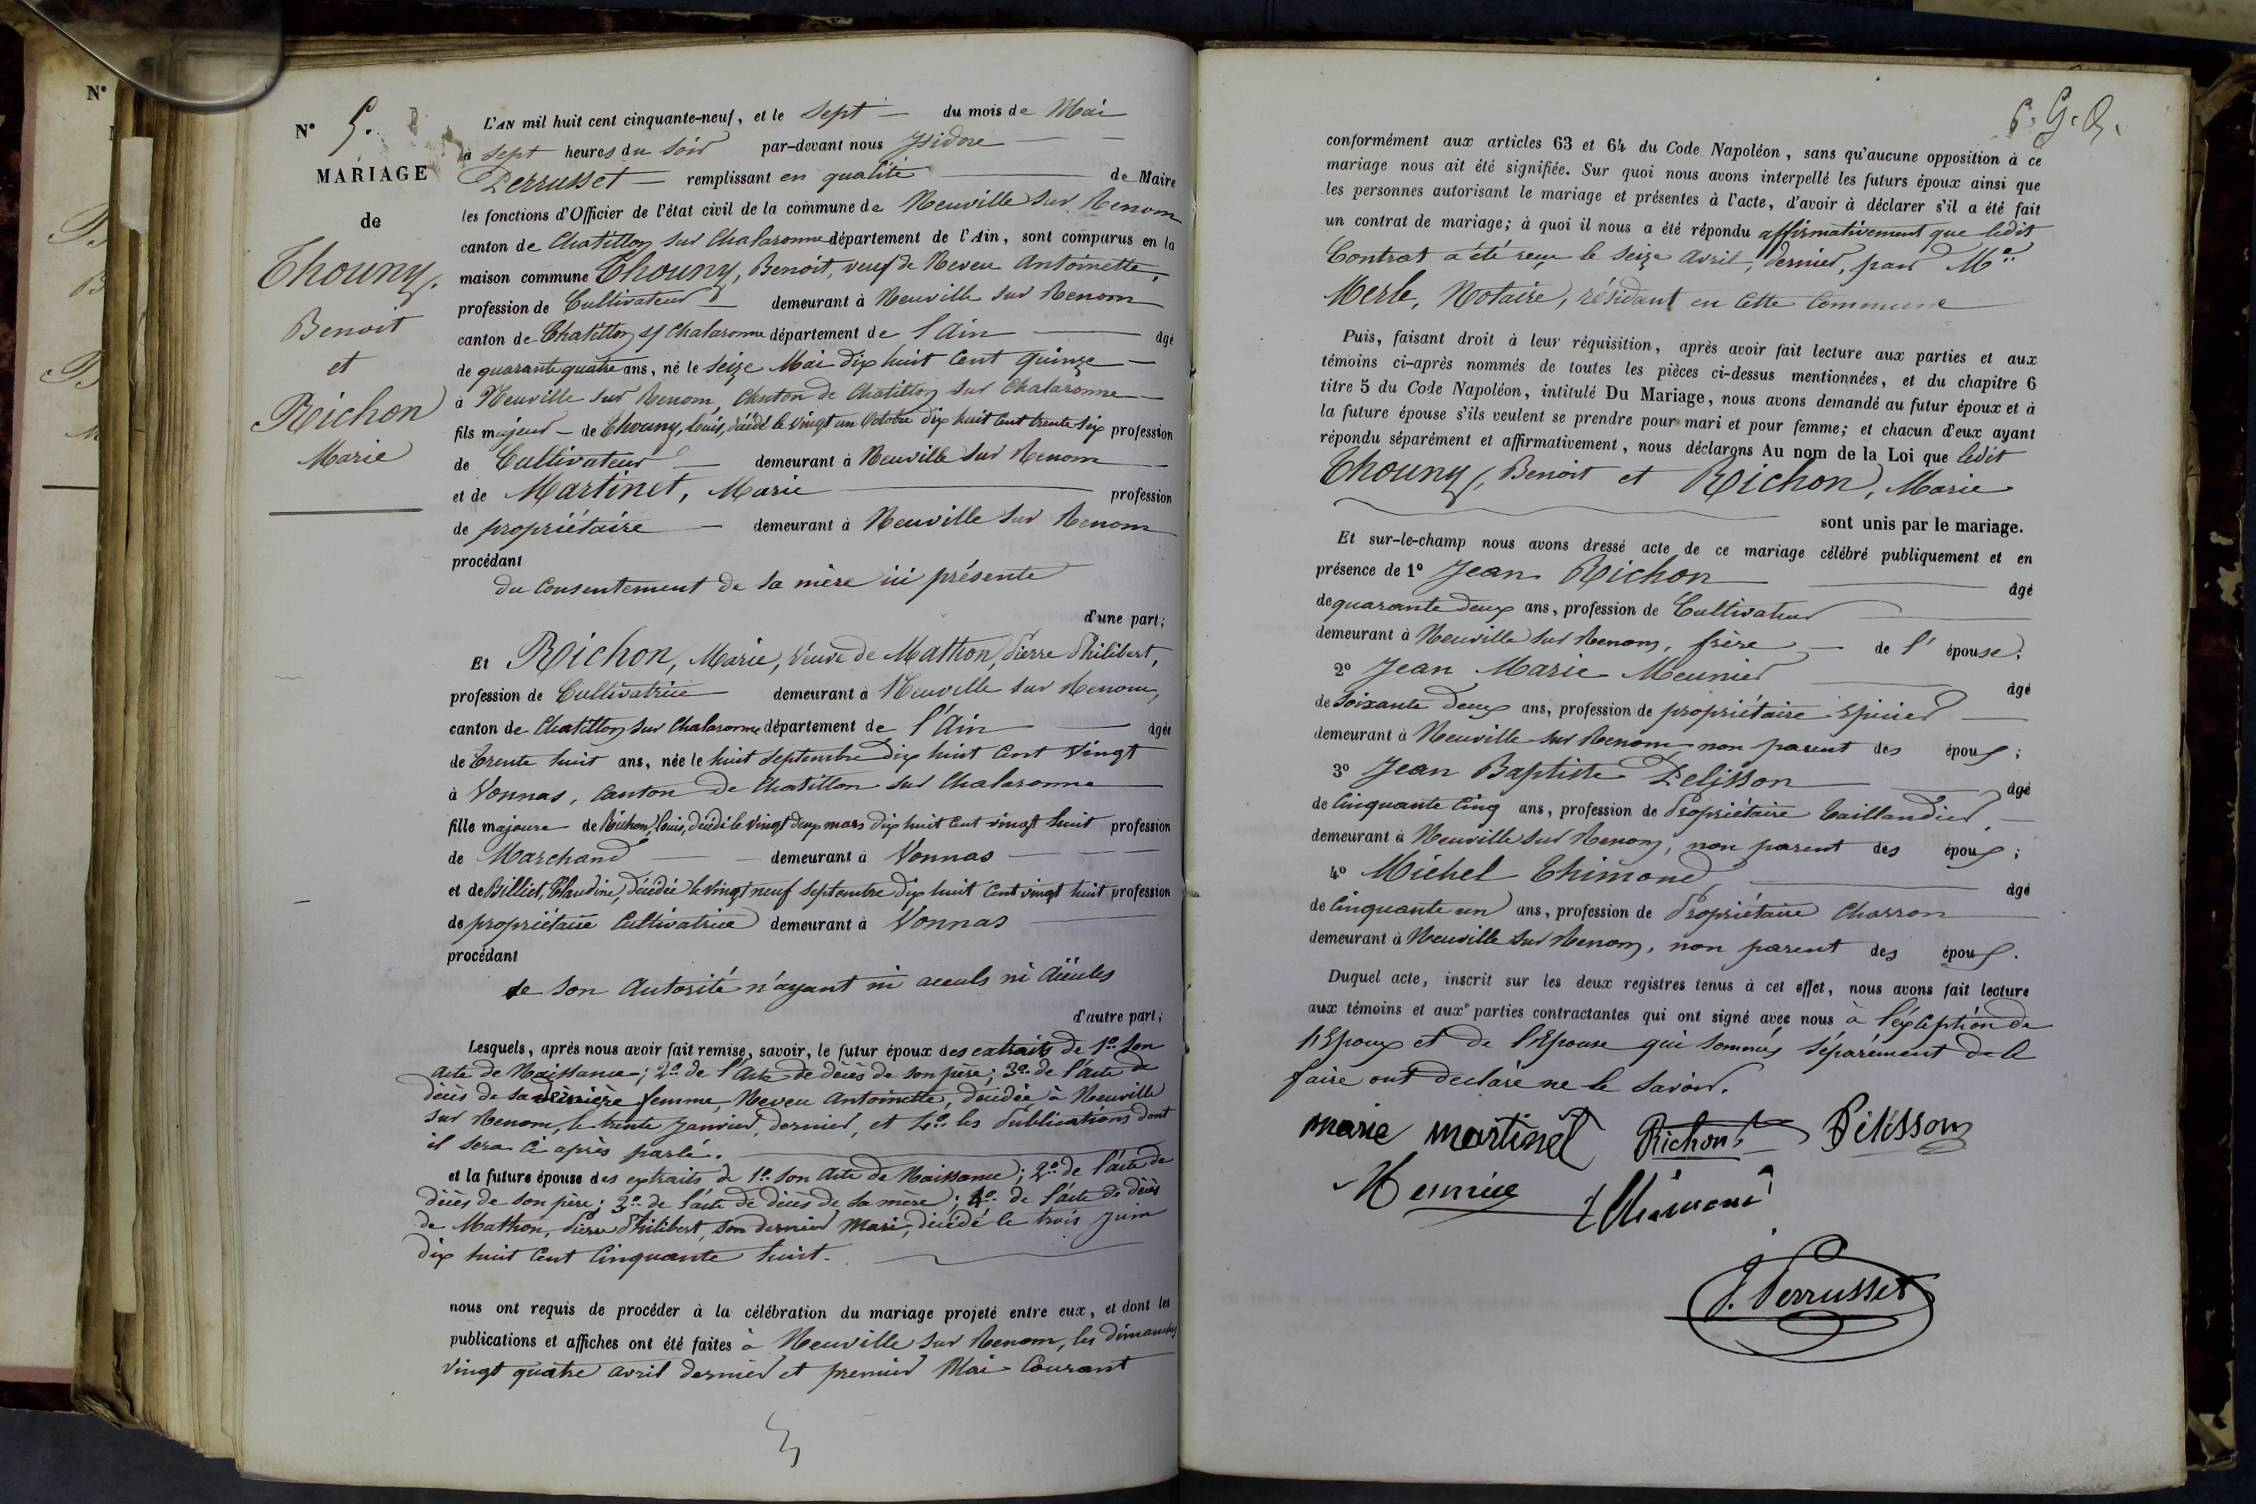 N°
N° 5.
MARIAGE
de
Thouny,
Benoit
et
Richon
Marie
L'AN mil huit cent cinquante-neuf, et le sept du mois de Mai
à sept heures du soir par-devant nous Isidore
Perrusset remplissant en qualité de Maire
les fonctions d'Officier de l'état civil de la commune de Neuville sur Renom
canton de Chatillon sur Chalaronne département de l'Ain, sont comparus en la
maison commune Thouny, Benoit, veuf de Neveu Antoinette,
profession de Cultivateur demeurant à Neuville sur Renom
canton de Chatillon s/ Chalaronne département de l'Ain âgé
de quarante quatre ans, né le seize Mai dix huit cent quinze
à Neuville sur Renom, Canton de Chatillon sur Chalaronne
fils majeur de Thouny, Louis, décédé le vingt un Octobre dix huit cent trente six profession
de Cultivateur demeurant à Neuville sur Renom
et de Martinet, Marie profession
de propriétaire demeurant à Neuville sur Renom
procédant
du consentement de sa mère ici présente
d'une part;
Et Richon, Marie, veuve de Mathon, Pierre Philibert,
profession de Cultivatrice demeurant à Neuville sur Renom,
canton de Chatillon sur Chalaronne département de l'Ain âgée
de trente huit ans, née le huit septembre dix huit cent vingt
à Vonnas, Canton de Chatillon sur Chalaronne
fille majeure de Richon, Louis, décédé le vingt deux mars dix huit cent vingt huit profession
de Marchand demeurant à Vonnas
et de Billiet, Claudine, décédée le vingt neuf septembre dix huit cent vingt huit profession
de propriétaire Cultivatrice demeurant à Vonnas
procédant
de son Autorité n'ayant ni aieuls ni aïeules
d'autre part;
Lesquels, après nous avoir fait remise, savoir, le futur époux des extraits de 1° son
acte de Naissance; 2° de l'Acte de décès de son père; 3° de l'acte de
décès de sa dernière femme, Neveu Antoinette, décédée à Neuville
sur Renom, le trente Janvier, dernier, et 4° les Publications dont
il sera ci après parlé.
et la future épouse des extraits de 1° son Acte de Naissance; 2° de l'acte de
décès de son père; 3° de l'acte de décès de sa mère; 4° de l'acte de décès
de Mathon, Pierre Philibert, son dernier Mari, décédé le trois Juin
dix huit cent cinquante huit.
nous ont requis de procéder à la célébration du mariage projeté entre eux, et dont les
publications et affiches ont été faites à Neuville sur Renom, les dimanches
vingt quatre avril dernier et premier Mai Courant
conformément aux articles 63 et 64 du Code Napoléon, sans qu'aucune opposition à ce
mariage nous ait été signifiée. Sur quoi nous avons interpellé les futurs époux ainsi que
les personnes autorisant le mariage et présentes à l'acte, d'avoir à déclarer s'il a été fait
un contrat de mariage; à quoi il nous a été répondu affirmativement que ledit
Contrat a été reçu le seize Avril, dernier, par Me
Merle, Notaire, résidant en cette Commune
Puis, faisant droit à leur réquisition, après avoir fait lecture aux parties et aux
témoins ci-après nommés de toutes les pièces ci-dessus mentionnées, et du chapitre 6
titre 5 du Code Napoléon, intitulé Du Mariage, nous avons demandé au futur époux et à
la future épouse s'ils veulent se prendre pour mari et pour femme; et chacun d'eux ayant
répondu séparément et affirmativement, nous déclarons Au nom de la Loi que ledit
Thouny, Benoit et Richon, Marie
sont unis par le mariage.
Et sur-le-champ nous avons dressé acte de ce mariage célébré publiquement et en
présence de 1° Jean Richon âgé
de quarante deux ans, profession de Cultivateur
demeurant à Neuville sur Renom, frère de l' épouse;
2° Jean Marie Meunier âgé
de soixante deux ans, profession de propriétaire Epicier
demeurant à Neuville sur Renom non parent des époux;
3° Jean Baptiste Pelisson âgé
de Cinquante Cinq ans, profession de Propriétaire Taillandier
demeurant à Neuville sur Renom, non parent des époux;
4° Michel Thimond âgé
de Cinquante un ans, profession de Propriétaire Charron
demeurant à Neuville sur Renom, non parent des époux.
Duquel acte, inscrit sur les deux registres tenus à cet effet, nous avons fait lecture
aux témoins et aux parties contractantes qui ont signé avec nous à l'éxception de
l'Epoux et de l'Epouse qui sommés séparément de le
faire ont declaré ne le savoir.
marie martinet Richon Pélisson
Meunier thimond
J. Perrusset